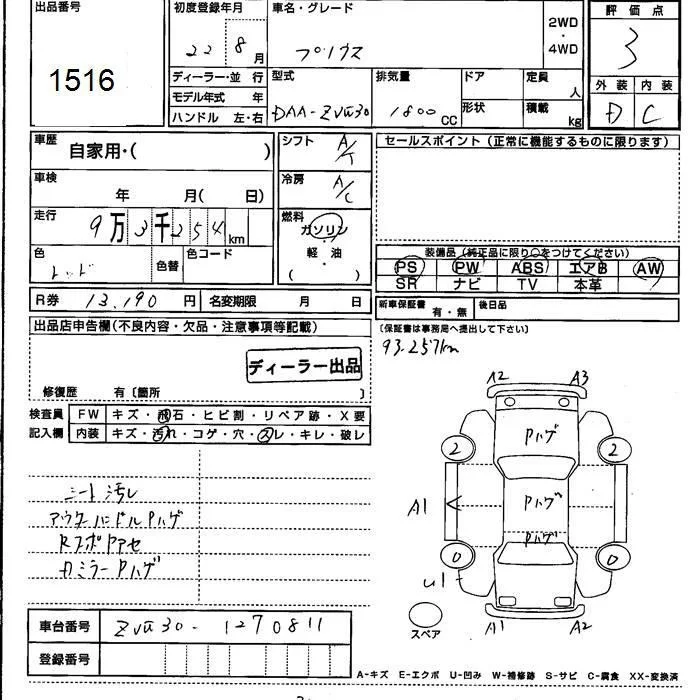 出品番号
1516
初度登録年月
22 8月
車名・グレード
プリウス
2WD
・
4WD
評価点
3
外装 内装
D C
ディーラー・並 行
モデル年式 年
ハンドル 左・右
型式
DAA-ZVW30
排気量
1800 CC
ドア
形状
定員
人
積載
kg
車歴
自家用・( )
車検
年 月( 日)
走行
9万3千254km
色
レッド
色替
色コード
シフト
A/T
冷房
A/C
燃料
ガソリン
・
軽 油
( ・ )
セールスポイント (正常に機能するものに限ります)
装備品 (純正品に限り○をつけてください)
PS PW ABS エアB AW
SR ナビ TV 本革
R券 13,190 円
名変期限 月 日
新車保証書 有・無
後日品
(保証書は事務局へ提出して下さい)
93,257km
出品店申告欄(不良内容・欠品・注意事項等記載)
ディーラー出品
修復歴 有〔箇所 〕
検査員記入欄
FW キズ・飛石・ヒビ割・リペア跡・X要
内装 キズ・汚れ・コゲ・穴・スレ・キレ・破レ
シート汚レ
アウターハンドルPハゲ
RスポPアセ
ドミラーPハゲ
A2 A3
Pハゲ
2 2
A1
Pハゲ
Pハゲ
0 0
U1
A1 A2
スペア
車台番号 ZVW30-1270811
登録番号
A-キズ E-エクボ U-凹み W-補修跡 S-サビ C-腐食 XX-変換済